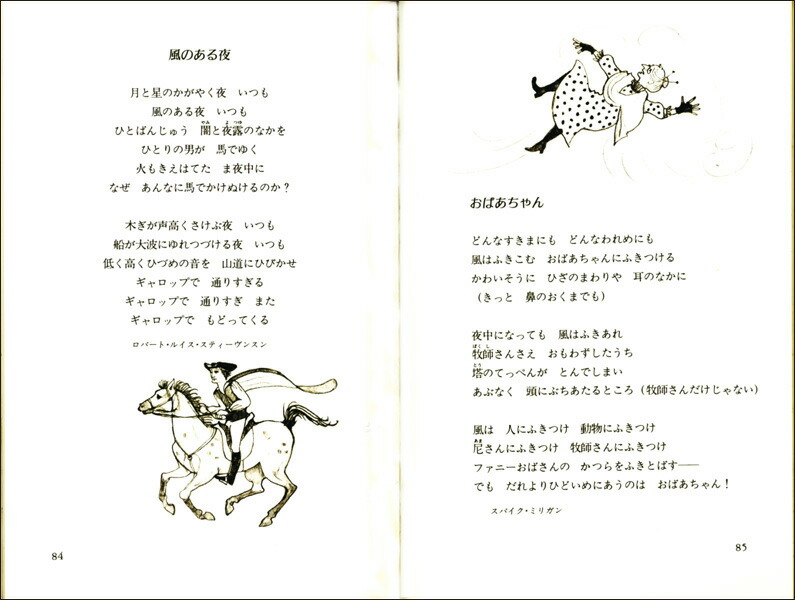 風のある夜
月と星のかがやく夜　いつも
風のある夜　いつも
ひとばんじゅう　闇と夜露のなかを
ひとりの男が　馬でゆく
火もきえはてた　ま夜中に
なぜ　あんなに馬でかけぬけるのか？
木ぎが声高くさけぶ夜　いつも
船が大波にゆれつづける夜　いつも
低く高くひづめの音を　山道にひびかせ
ギャロップで　通りすぎる
ギャロップで　通りすぎ　また
ギャロップで　もどってくる
ロバート・ルイス・スティーヴンスン
84
おばあちゃん
どんなすきまにも　どんなわれめにも
風はふきこむ　おばあちゃんにふきつける
かわいそうに　ひざのまわりや　耳のなかに
（きっと　鼻のおくまでも）
夜中になっても　風はふきあれ
牧師さんさえ　おもわずしたうち
塔のてっぺんが　とんでしまい
あぶなく　頭にぶちあたるところ（牧師さんだけじゃない）
風は　人にふきつけ　動物にふきつけ
尼さんにふきつけ　牧師さんにふきつけ
ファニーおばさんの　かつらをふきとばす――
でも　だれよりひどいめにあうのは　おばあちゃん！
スパイク・ミリガン
85